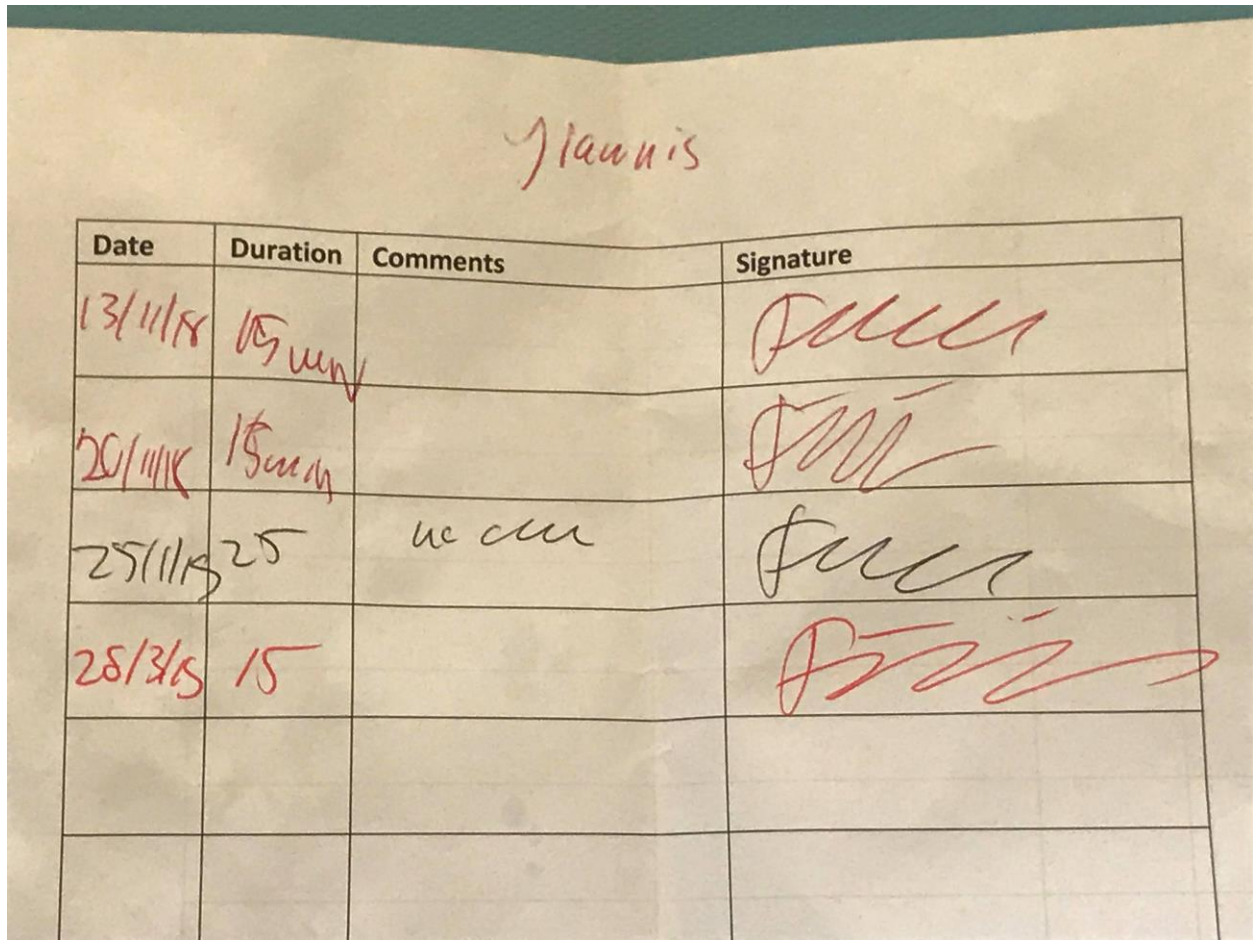 Yiannis
Date Duration Comments Signature
13/11/18 15min
20/11/18 15min
25/1/19 25
28/3/19 15